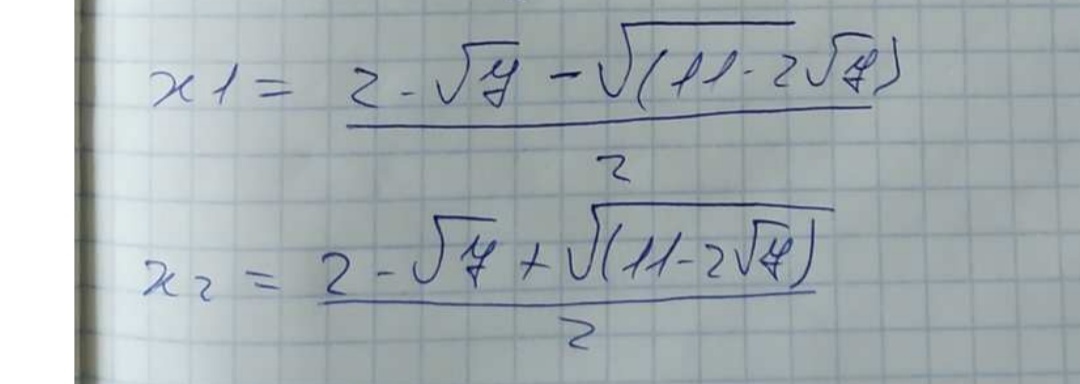 x1 = (2 - √7 - √(11 - 2√7)) / 2
x2 = (2 - √7 + √(11 - 2√7)) / 2